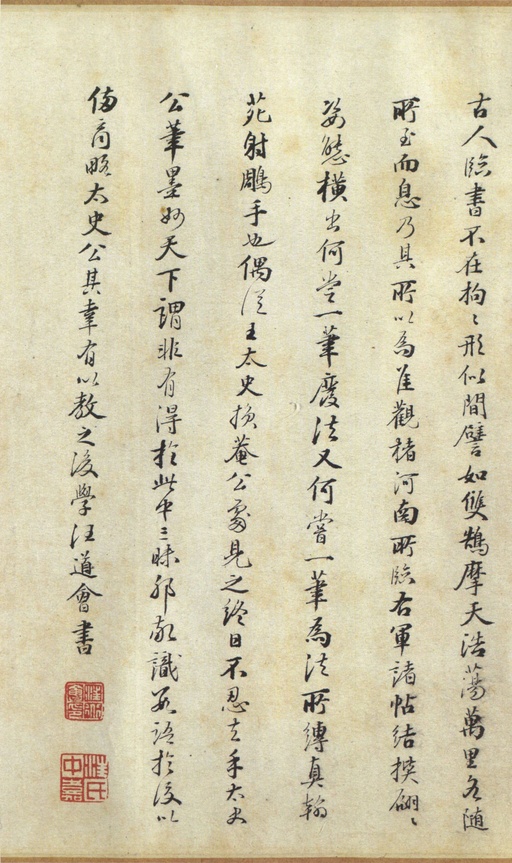 古人臨書不在拘〻形似間譬如雙鵠摩天浩蕩萬里各隨
所至而息乃其所以為佳觀褚河南所臨右軍諸帖結撰翩〻
姿態橫出何嘗一筆廢法又何嘗一筆為法所縛真翰
苑射鵰手也偶從王太史損菴公處見之終日不忍去手太史
公筆墨妙天下謂非有得於此中三昧邪敬識數語於後以
俻商略太史公其幸有以教之後學汪道會書
汪氏中嘉